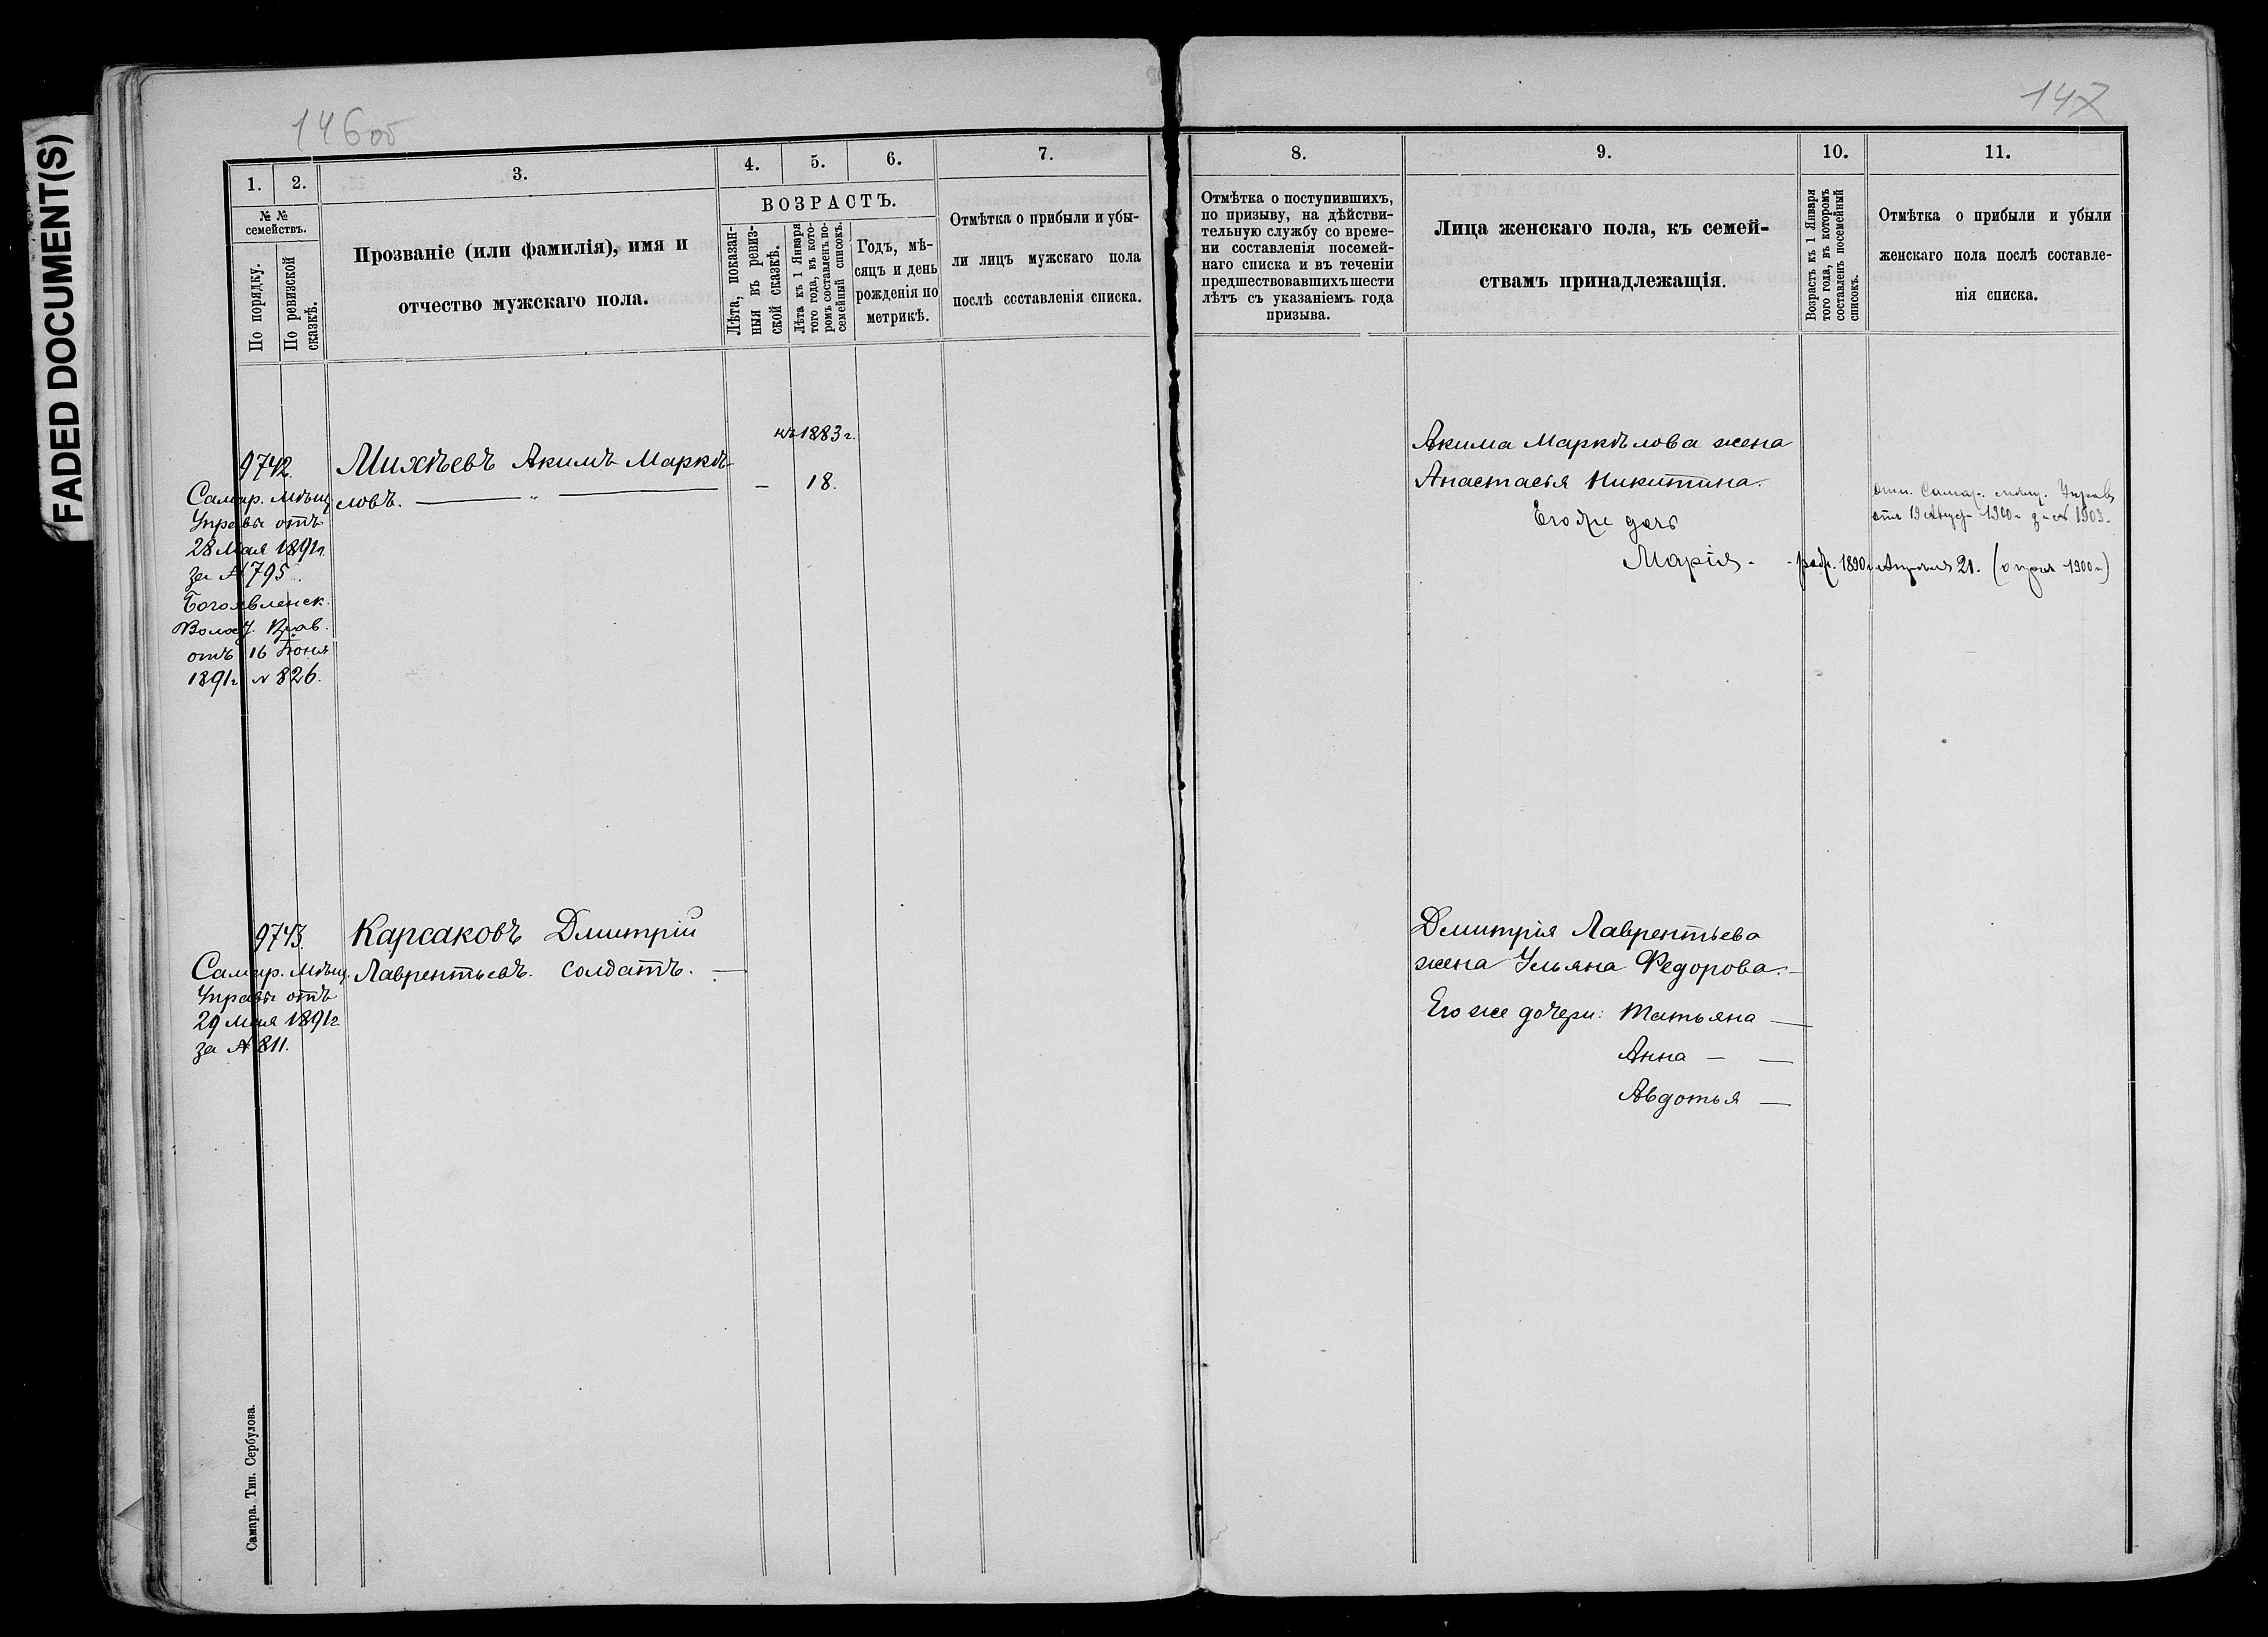 FADED DOCUMENT(S)
146об
1.
2.
3.
4.
5.
6.
7.
№ №
семействъ.
По порядку.
По ревизской
сказкѣ.
Прозваніе (или фамилія), имя и
отчество мужскаго пола.
ВОЗРАСТЪ.
Лѣта, показан-
ныя въ ревиз-
ской сказкѣ.
Лѣта къ 1 Января
того года, въ кото-
ромъ составленъ по-
семейный списокъ.
Годъ, мѣ-
сяцъ и день
рожденія по
метрикѣ.
Отмѣтка о прибыли и убы-
ли лицъ мужскаго пола
послѣ составленія списка.
къ 1883 г.
9742.
Михѣевъ Акимъ Маркѣ-
ловъ. — „ —
– 18.
Самар. Мѣщ.
Управы отъ
28 Мая 1891 г.
за № 795.
Богоявленск.
Волост. Прав.
отъ 16 Іюня
1891 г. № 826.
9743.
Карсаковъ Дмитрій
Лаврентьевъ. солдатъ. —
Самар. Мѣщ.
Управы отъ
29 Мая 1891 г.
за № 811.
Самара. Тип. Сербулова.
147
8.
9.
10.
11.
Отмѣтка о поступившихъ,
по призыву, на дѣйстви-
тельную службу со време-
ни составленія посемей-
наго списка и въ теченіи
предшествовавшихъ шести
лѣтъ съ указаніемъ года
призыва.
Лица женскаго пола, къ семей-
ствамъ принадлежащія.
Возрастъ къ 1 Января
того года, въ которомъ
составленъ посемейный
списокъ.
Отмѣтка о прибыли и убыли
женскаго пола послѣ составле-
нія списка.
Акима Маркѣлова жена
Анастасія Никитина.
Его же дочь
Марія - род. 1890 г. Апрѣля 21.
Самар. мѣщ. Управ.
отъ 19 1900 г. за № 1903.
Дмитрія Лаврентьева
жена Ульяна Федорова. –
Его же дочери: Татьяна —
Анна – —
Авдотья —